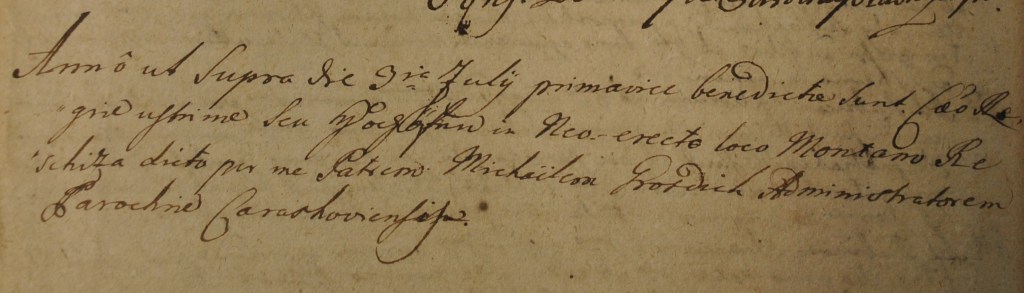 Annô ut Supra die 3ia July primavice benedictæ sunt Cæo Re-
giæ ustrinæ seu in Neo-erecto loco Montano Re
schiza dicto per me Patrem Michäelem Administratorem
Parochiæ Carashoviensis.